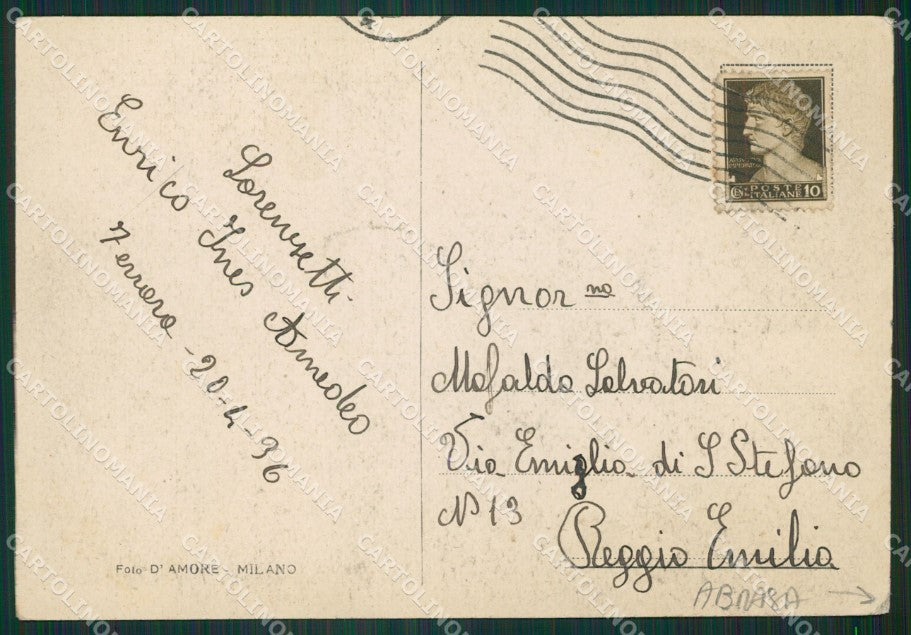 Lorenzetti
Enrico Ines Amedeo
Ferrara - 20-4-36
Foto D'AMORE - MILANO
POSTE
ITALIANE 10
Signor na
Mafalda Salvatori
Via Emiglia di S Stefano
N° 13
Reggio Emilia
ABRASA
CARTOLINOMANIA